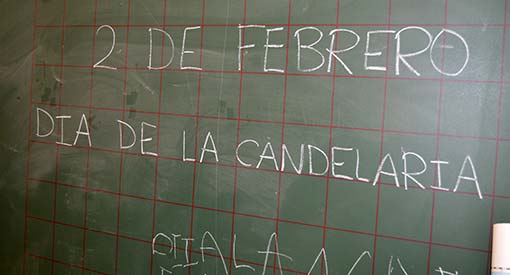 2 DE FEBRERO
DIA DE LA CANDELARIA